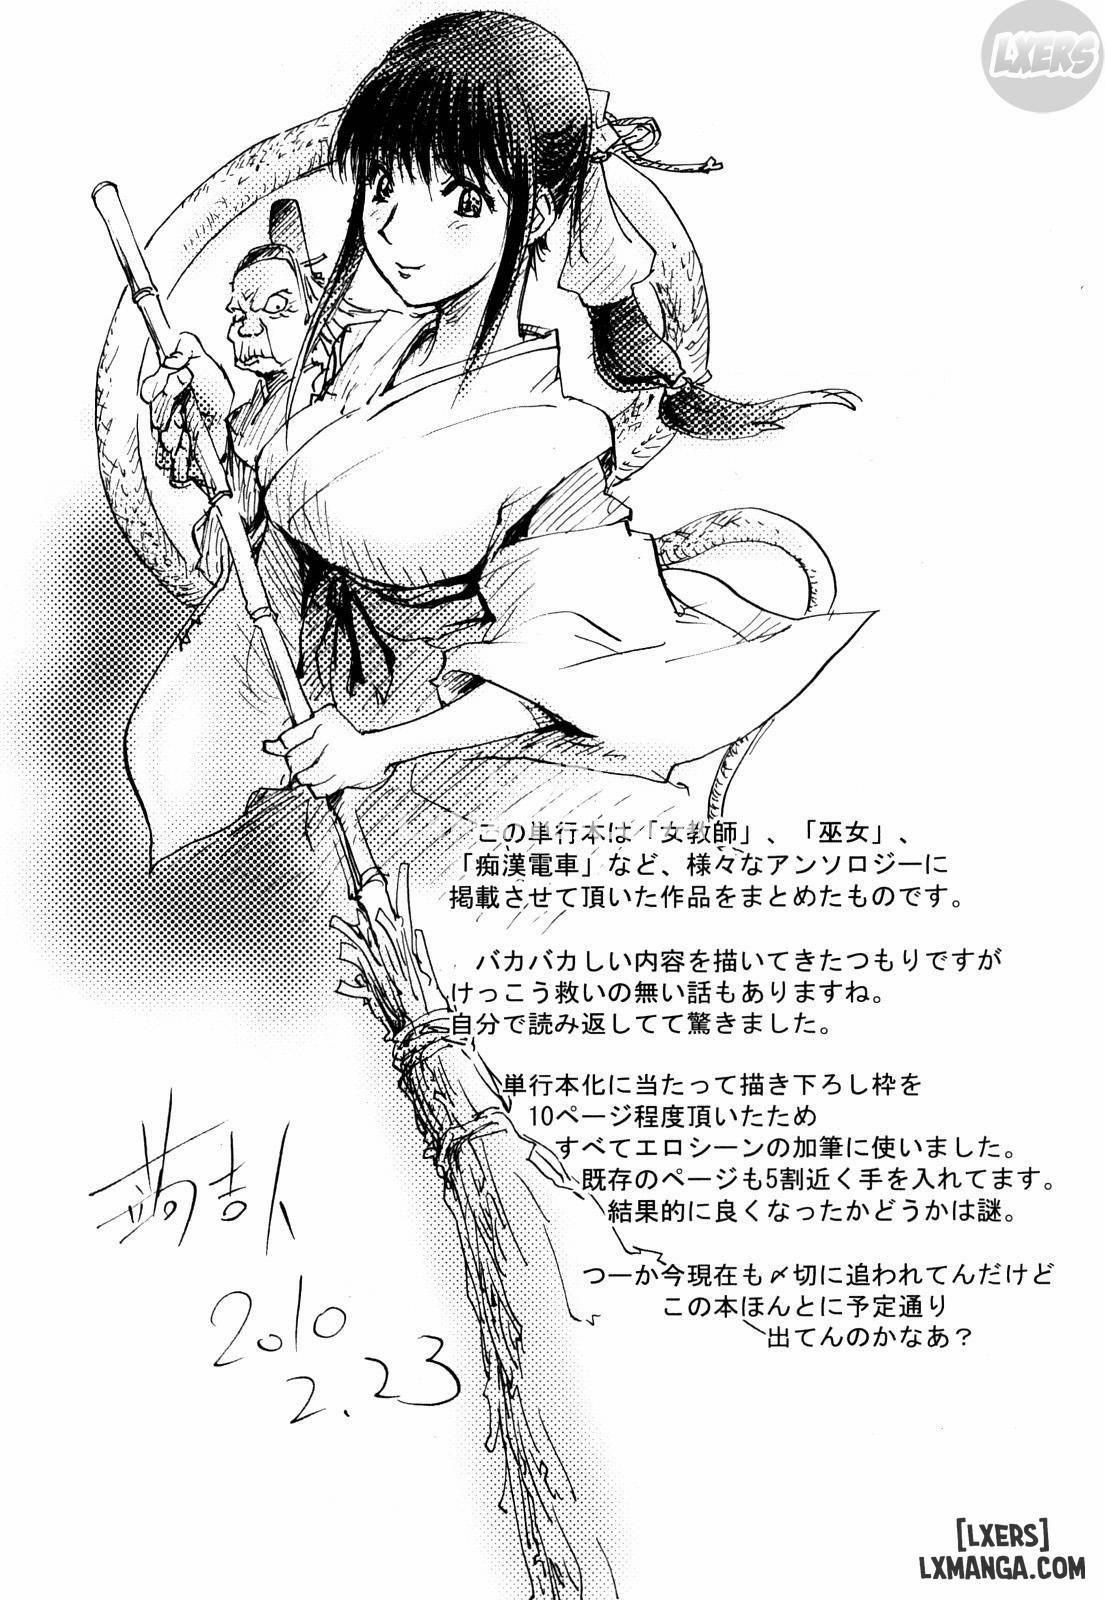 LXERS
この単行本は「女教師」、「巫女」、
「痴漢電車」など、様々なアンソロジーに
掲載させて頂いた作品をまとめたものです。
バカバカしい内容を描いてきたつもりですが
けっこう救いの無い話もありますね。
自分で読み返してて驚きました。
単行本化に当たって描き下ろし枠を
10ページ程度頂いたため
すべてエロシーンの加筆に使いました。
既存のページも5割近く手を入れてます。
結果的に良くなったかどうかは謎。
つーか今現在も〆切に追われてんだけど
この本ほんとに予定通り
出てんのかなあ？
2010
2.23
[LXERS]
LXMANGA.COM